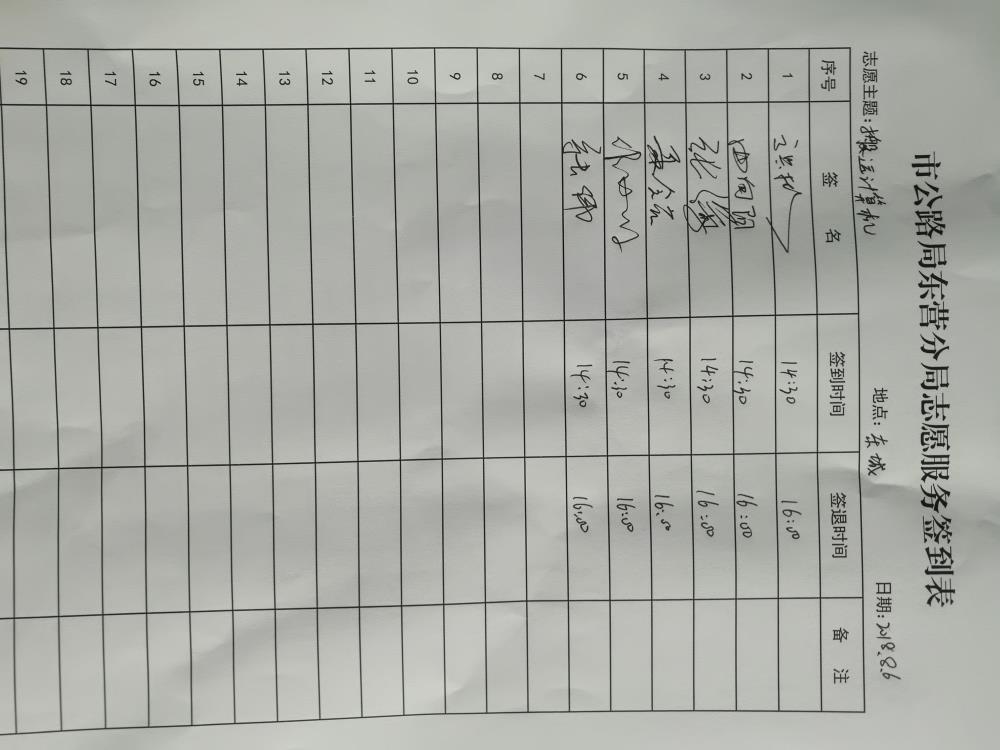 市公路局东营分局志愿服务签到表
志愿主题:搬运计算机 地点:东城 日期:2018.8.6
序号 签名 签到时间 签退时间 备注
1 14:30 16:00
2 14:30 16:00
3 14:30 16:00
4 14:30 16:00
5 14:30 16:00
6 14:30 16:00
7
8
9
10
11
12
13
14
15
16
17
18
19